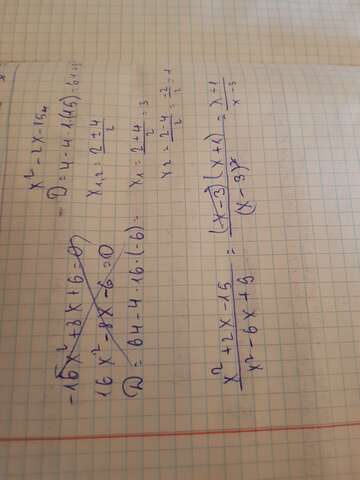 x² - 2x - 15
D = 4 - 4 · 1 · (15) = 64
x₁,₂ = (2 ± 4)/2
x₁ = (2 + 4)/2 = 3
x₂ = (2 - 4)/2 = -2/2 = -1
-16x² + 8x + 6 = 0
16x² - 8x - 6 = 0
D = 64 - 4 · 16 · (-6) =
(x² + 2x - 15)/(x² - 6x + 9) = ((x - 3)(x + 1))/(x - 3)² = (x + 1)/(x - 3)